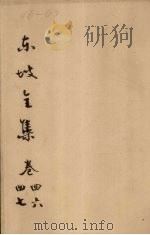 东坡全集 卷四六
四七
mtoou.info